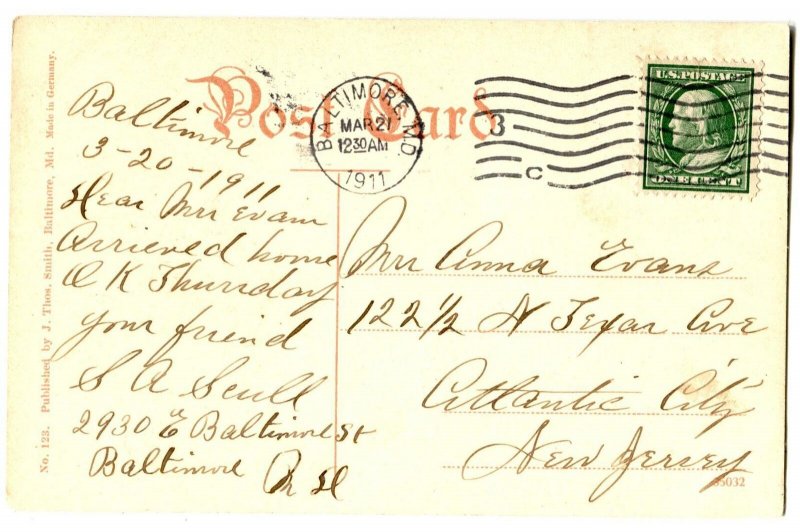 Post Card
BALTIMORE, MD.
MAR 21
12 30 AM
1911
3
C
U.S. POSTAGE
ONE CENT
Baltimore
3-20-1911
Dear Mrs Evans
Arrieved home
O K Thursday
your friend
S A Scull
2930 E Baltimore St
Baltimore Md
Mrs Anna Evans
122 1/2 N Texas Ave
Atlantic City
New Jersey
No. 123. Published by J. Thos. Smith, Baltimore, Md. Made in Germany.
35032